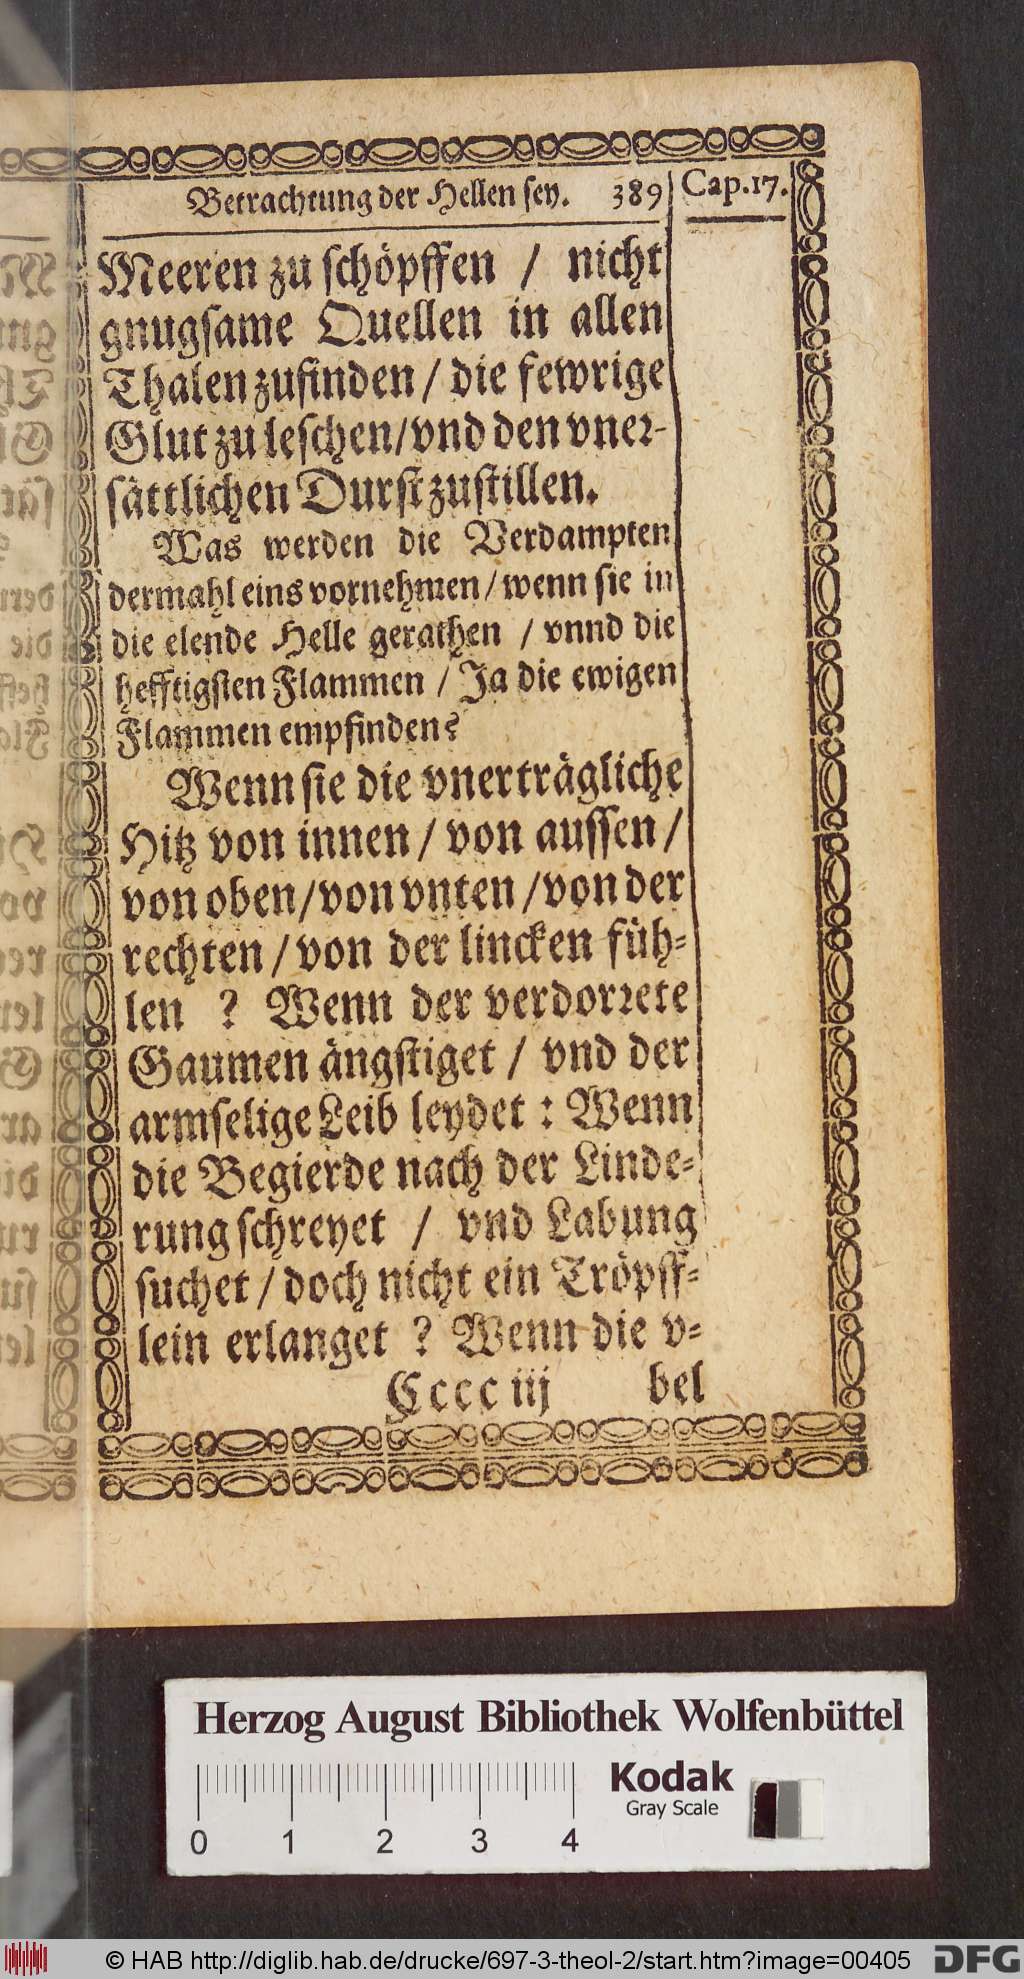 Betrachtung der Hellen sey. 389
Cap. 17.
Meeren zu schöpffen / nicht
gnugsame Quellen in allen
Thalen zufinden / die fewrige
Glut zu leschen/vnd den vner-
sättlichen Durst zustillen.
Was werden die Verdampten
dermahl eins vornehmen / wenn sie in
die elende Helle gerathen / vnnd die
hefftigsten Flammen / Ja die ewigen
Flammen empfinden?
Wenn sie die vnerträgliche
Hitz von innen / von aussen /
von oben / von vnten / von der
rechten / von der lincken füh-
len ? Wenn der verdorrete
Gaumen ängstiget / vnd der
armselige Leib leydet : Wenn
die Begierde nach der Linde-
rung schreyet / vnd Labung
suchet / doch nicht ein Tröpff-
lein erlanget ? Wenn die v-
Cccc iij bel
Herzog August Bibliothek Wolfenbüttel
Kodak
Gray Scale
0 1 2 3 4
© HAB http://diglib.hab.de/drucke/697-3-theol-2/start.htm?image=00405
DFG